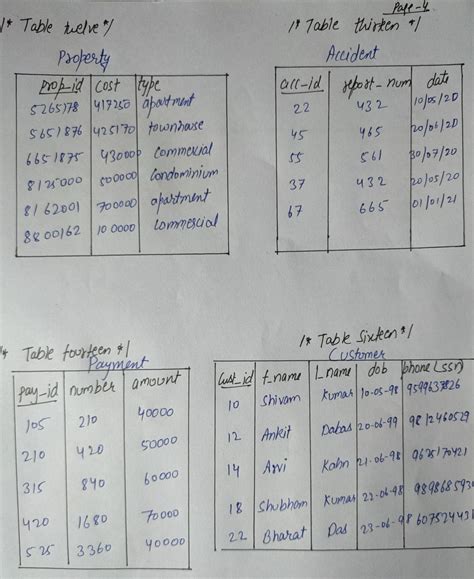 Page-4
/* Table twelve */
Property
prop-id cost type
5265178 417250 apartment
5651876 425170 townhouse
6651875 430000 commercial
8125000 500000 condominium
8162001 700000 apartment
8800162 100000 commercial
/* Table thirteen */
Accident
acc-id report-num date
22 432 10/05/20
45 465 20/06/20
55 561 30/07/20
37 432 20/05/20
67 665 01/01/21
/* Table fourteen */
Payment
pay-id number amount
105 210 40000
210 420 50000
315 840 60000
420 1680 70000
525 3360 40000
/* Table sixteen */
Customer
Cust_id f_name L_name dob phone (ssn)
10 Shivam Kumar 10-05-98
12 Ankit Dabas 20-06-99 9812460529
14 Arvi Kahn 21-06-98 9625170421
18 Shubham Kumar 22-06-98
22 Bharat Das 23-06-98